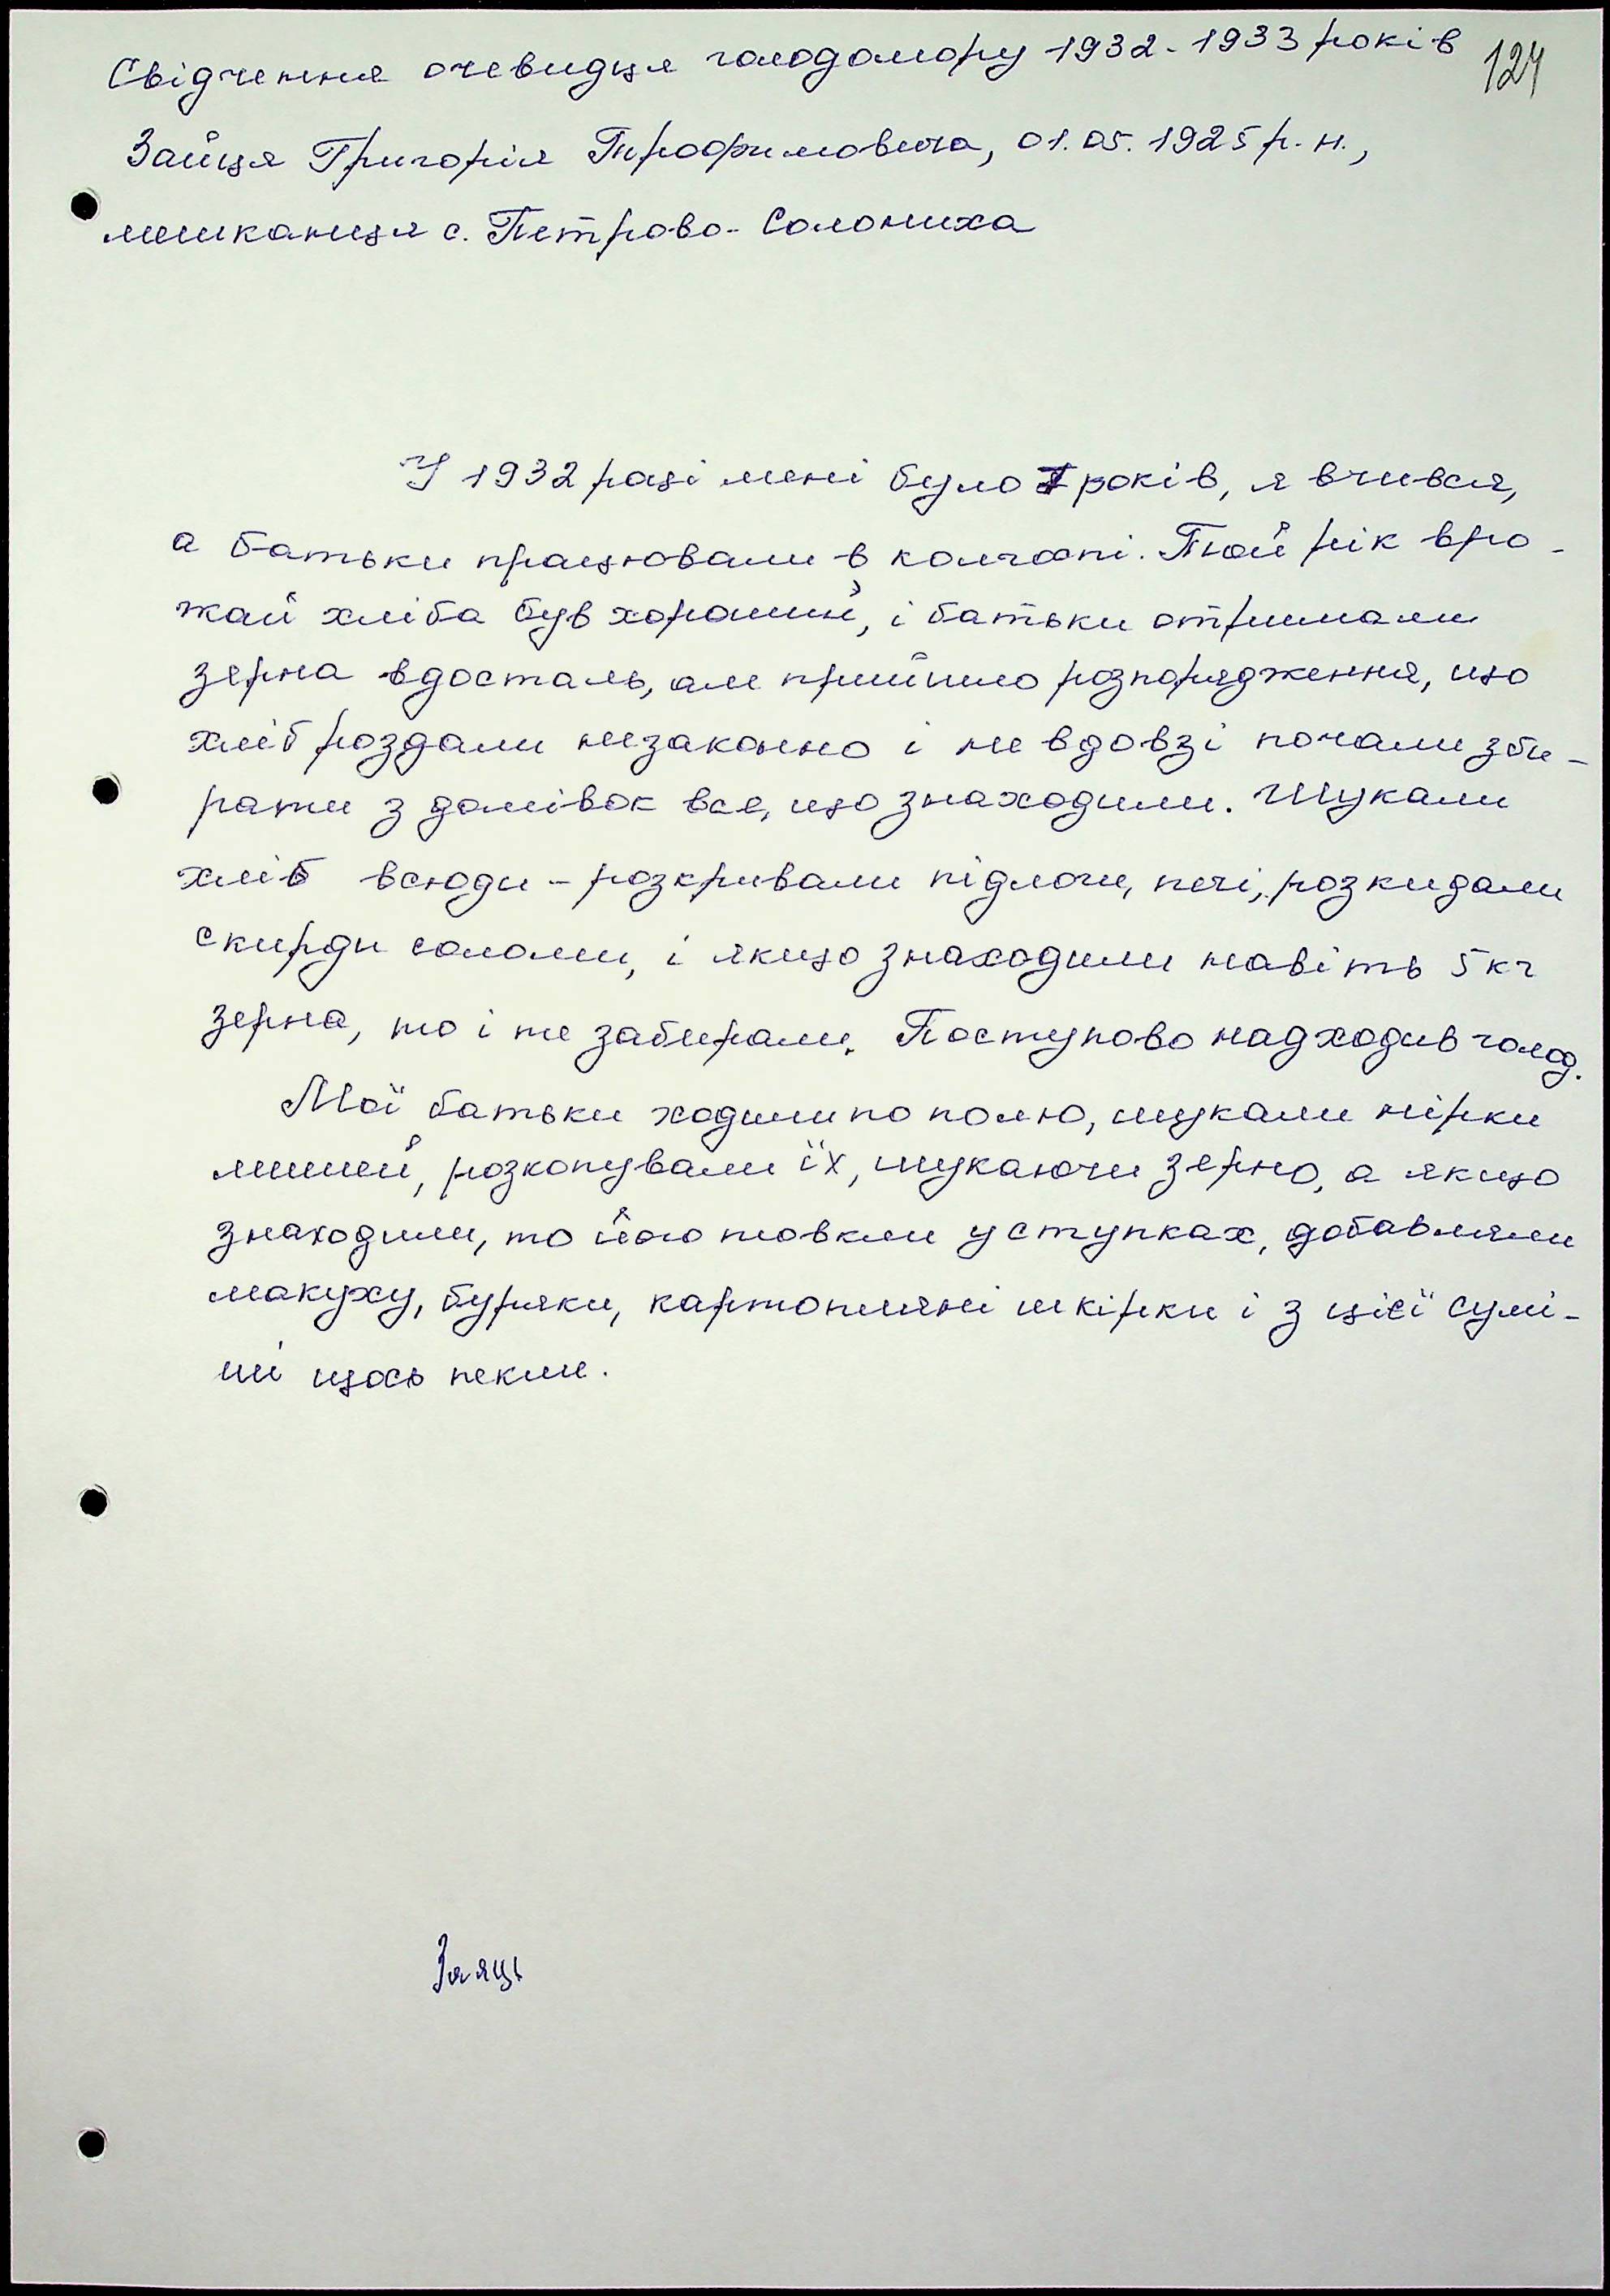 Свідчення очевидця голодомору 1932-1933 років
124
Зайця Григорія Трофимовича, 01.05.1925 р.н.,
мешканця с. Петрово-Солониха
У 1932 році мені було 7 років, я вчився,
а батьки працювали в колгоспі. Той рік вро-
жай хліба був хороший, і батьки отримали
зерна вдосталь, але прийшло розпорядження, що
хліб роздали незаконно і невдовзі почали зби-
рати з домівок все, що знаходили. Шукали
хліб всюди - розкривали підлоги, печі, розкидали
скирди соломи, і якщо знаходили навіть 5 кг
зерна, то і те забирали. Поступово надходив голод.
Мої батьки ходили по полю, шукали нірки
мишей, розкопували їх, шукаючи зерно, а якщо
знаходили, то його товкли у ступках, добавляли
макуху, буряки, картопляні шкірки і з цієї сумі-
ші щось пекли.
Заяць